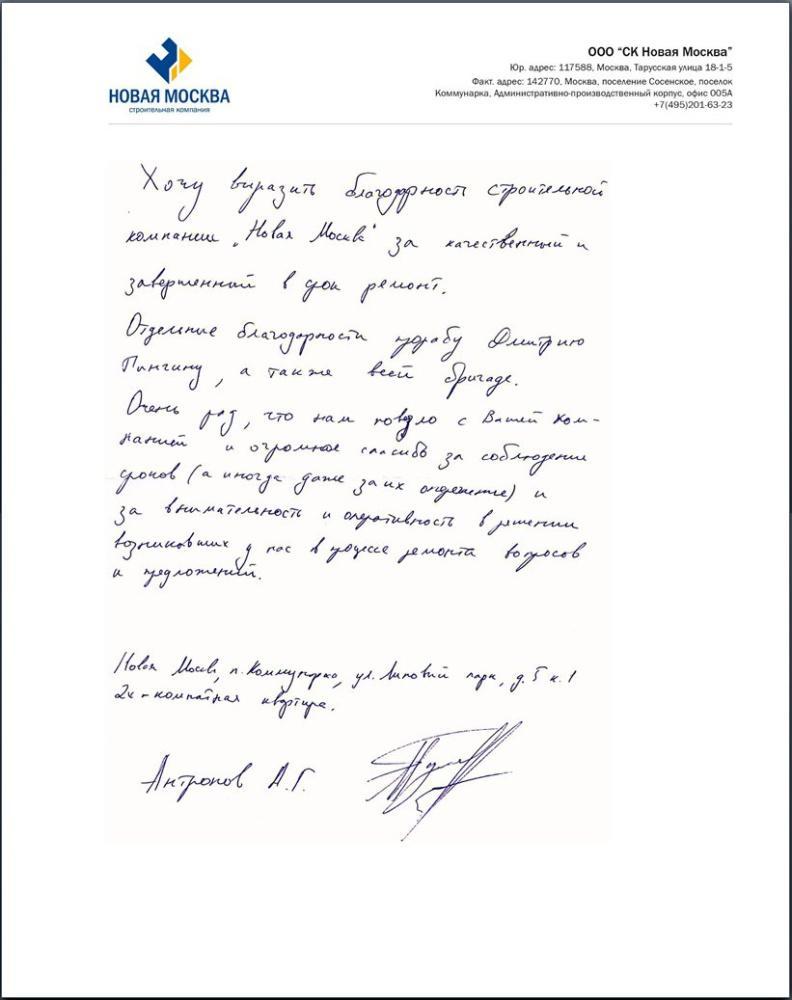 НОВАЯ МОСКВА
строительная компания
ООО "СК Новая Москва"
Юр. адрес: 117588, Москва, Тарусская улица 18-1-5
Факт. адрес: 142770, Москва, поселение Сосенское, поселок
Коммунарка, Административно-производственный корпус, офис 005А
+7(495)201-63-23
Хочу выразить благодарность строительной
компании „Новая Москва" за качественный и
завершенный в срок ремонт.
Отдельные благодарности прорабу Дмитрию
Пингину, а также всей бригаде.
Очень рад, что нам повезло с Вашей ком-
панией и огромное спасибо за соблюдение
сроков (а иногда даже за их опережение) и
за внимательность и оперативность в решении
возникавших у нас в процессе ремонта вопросов
и предложений.
Новая Москва, п. Коммунарка, ул. Липовый парк, д. 5 к. 1
2х-комнатная квартира.
Антропов А.Г.